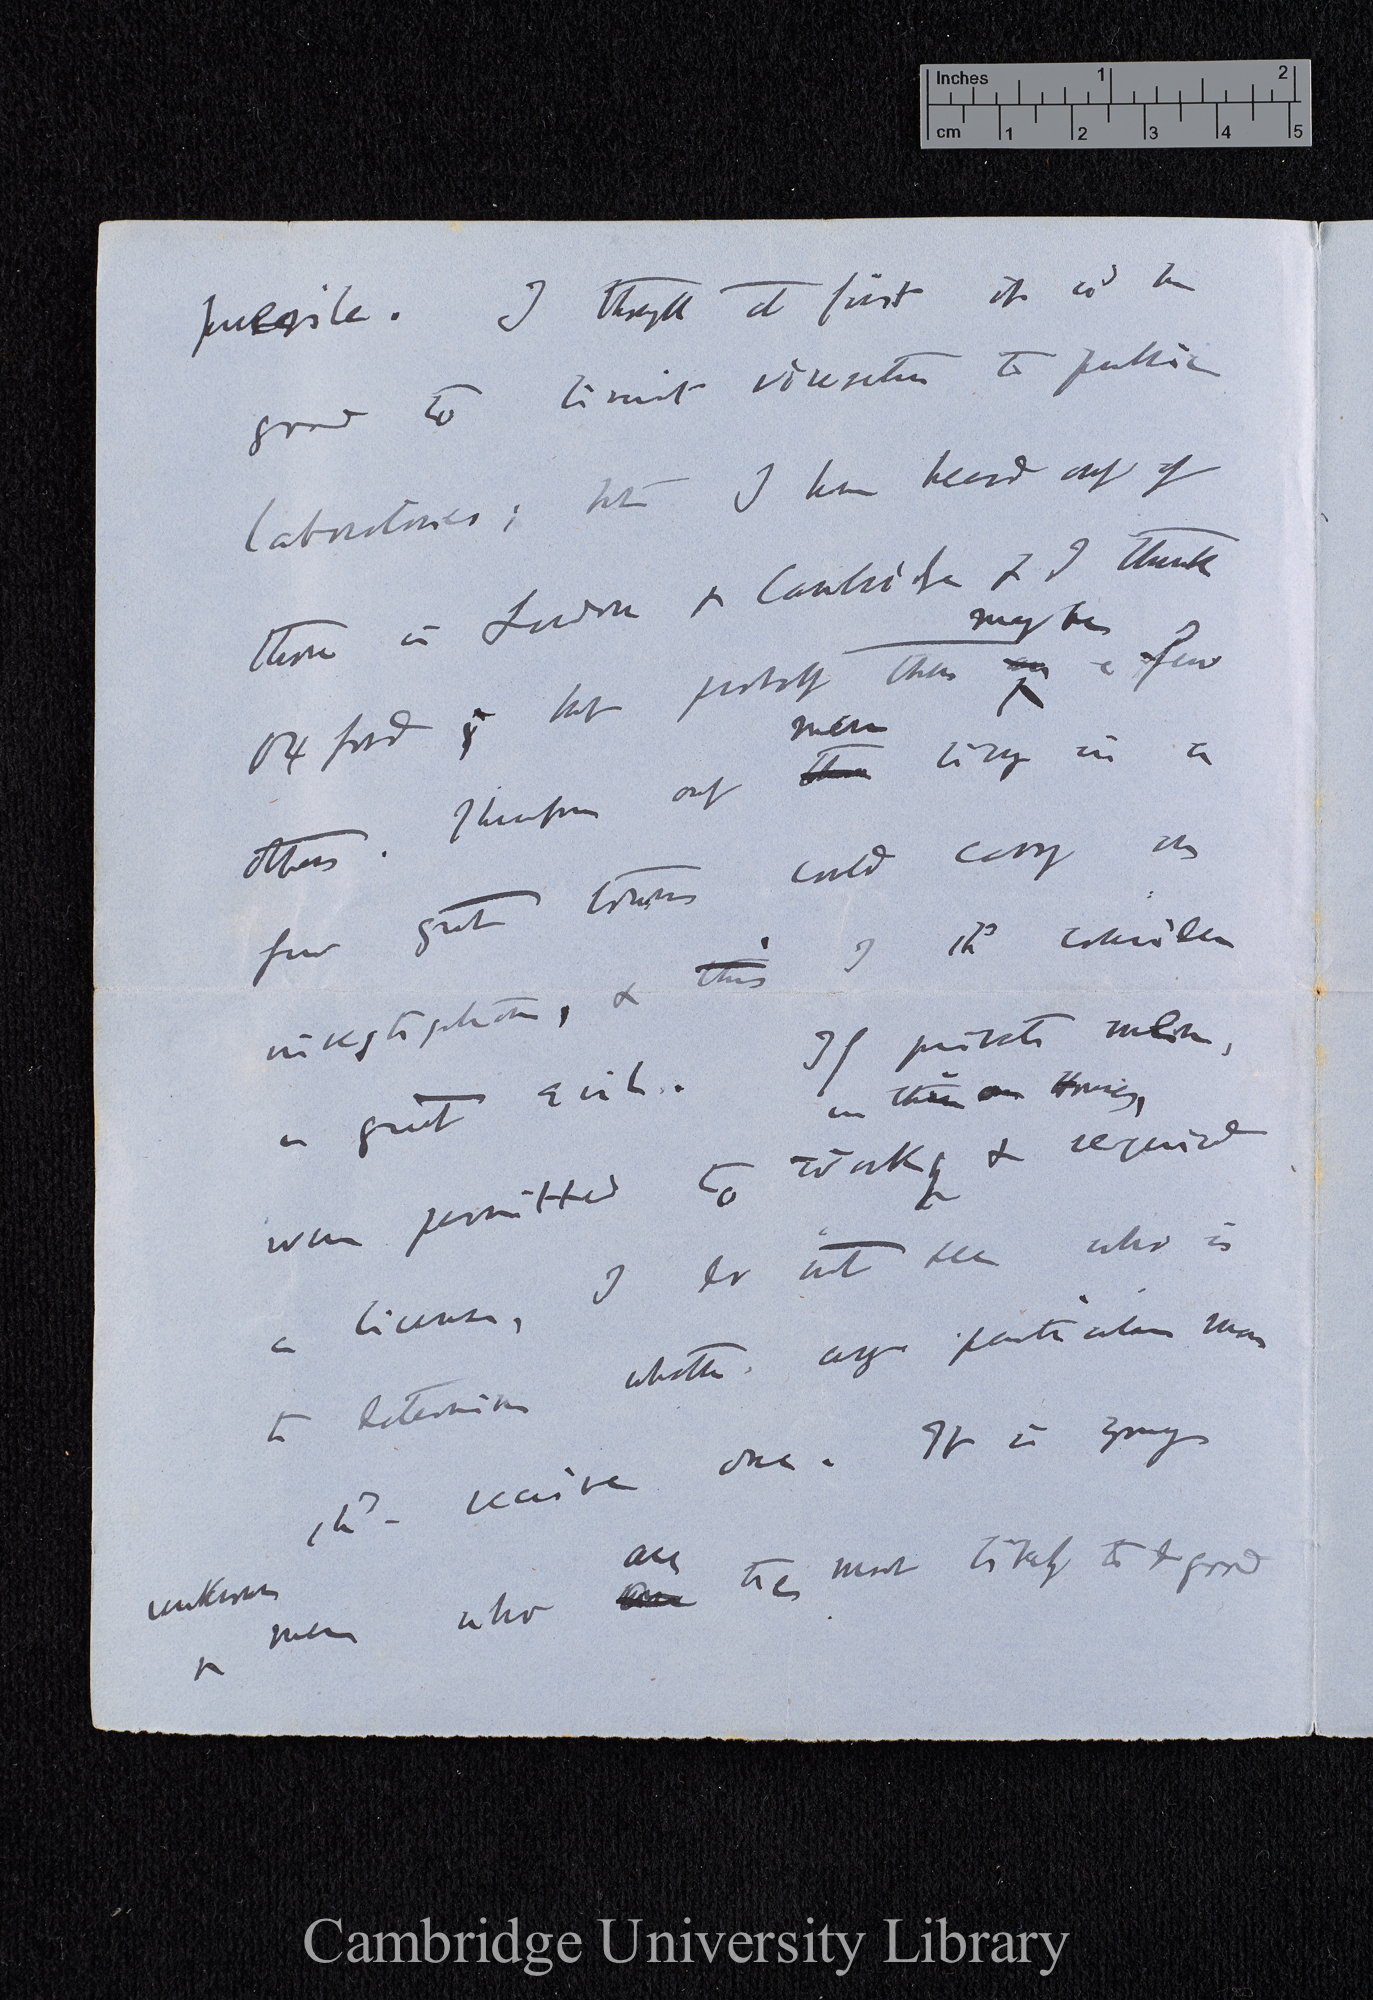 Inches 1 2
cm 1 2 3 4 5
puerile. I thought at first it wd be
good to limit vivisection to public
laboratories; but I have heard only of
those in London & Cambridge & I think
may be
Oxford; but probably there are a few
others. Therefore only men living in a
few great towns could carry on
investigation, & this I shd consider
a great evil. If private men,
in their own Houses,
were permitted to work, & required
a license, I do not see who is
to determine whether any particular man
shd receive one. It is young
unknown men who are the most likely to do good
Cambridge University Library